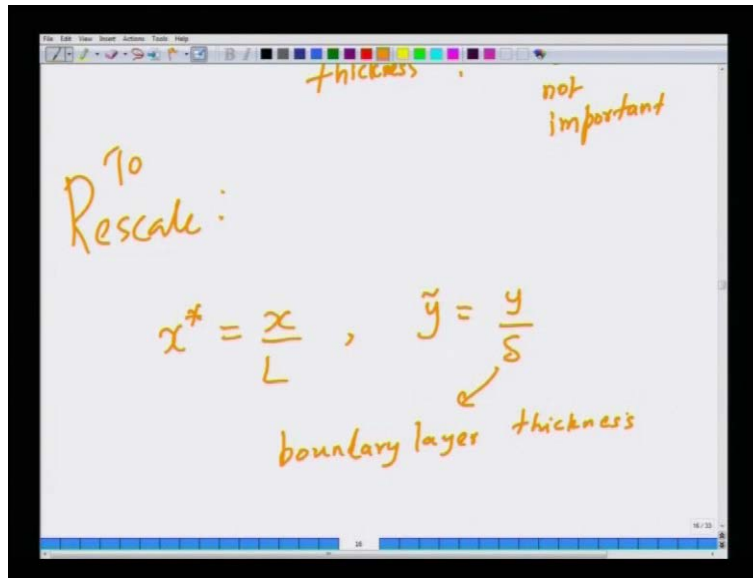 File Edit View Insert Actions Tools Help
B I
thickness .
not
important
To
Rescale :
x* = x/L , ỹ = y/δ
boundary layer thickness
16 / 33
16